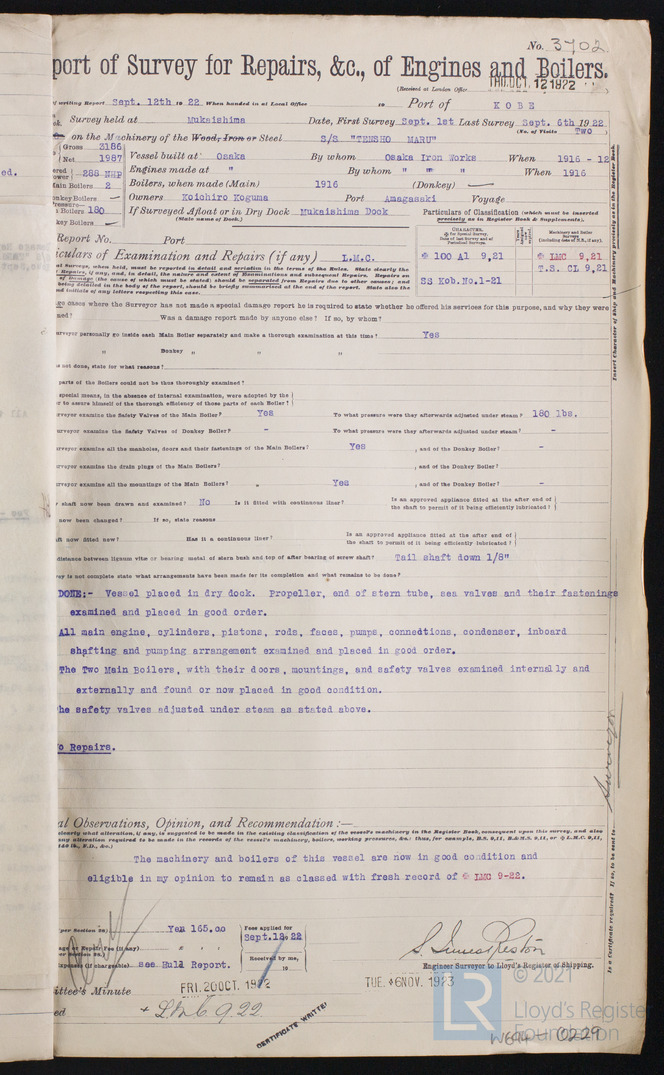 No. 3702
port of Survey for Repairs, &c., of Engines and Boilers.
(Received at London Office THU. OCT. 12 1922
of writing Report Sept. 12th 19 22 When handed in at Local Office 19 Port of KOBE
Survey held at Mukaishima Date, First Survey Sept. 1st Last Survey Sept. 6th 1922
(No. of Visits Two)
on the Machinery of the Wood, Iron or Steel S/S "TENSHO MARU"
Gross 2186
Net 1987
Vessel built at Osaka By whom Osaka Iron Works When 1916 - 12
288 NHP
Engines made at " By whom " " " When 1916
Main Boilers 2
Boilers, when made (Main) 1916 (Donkey) —
Donkey Boilers —
Owners Koichiro Koguma Port Amagasaki Voyage
n Boilers 180
key Boilers —
If Surveyed Afloat or in Dry Dock Mukaishima Dock
(State name of Dock.)
Particulars of Classification (which must be inserted
precisely as in Register Book & Supplements).
Report No. Port
CHARACTER.
for Special Survey.
Date of last Survey and of
Periodical Surveys.
Machinery and Boiler
Surveys
(including date of N.B., if any).
ticulars of Examination and Repairs (if any) L.M.C.
100 A1 9,21
LMC 9,21
T.S. CL 9,21
SS Kob.No.1-21
al Survey, when held, must be reported in detail and seriatim in the terms of the Rules. State clearly the
Repairs, if any, and, in detail, the nature and extent of Examinations and subsequent Repairs. Repairs on
of Damage (the cause of which must be stated) should be separated from Repairs due to other causes; and
being detailed in the body of the report, should be briefly summarized at the end of the report. State also the
and initials of any letters respecting this case.
cases where the Surveyor has not made a special damage report he is required to state whether he offered his services for this purpose, and why they were
ned? Was a damage report made by anyone else? If so, by whom?
urveyor personally go inside each Main Boiler separately and make a thorough examination at this time? Yes
" Donkey " " "
s not done, state for what reasons?
parts of the Boilers could not be thus thoroughly examined?
special means, in the absence of internal examination, were adopted by the
r to assure himself of the thorough efficiency of those parts of each Boiler?
rveyor examine the Safety Valves of the Main Boiler? Yes To what pressure were they afterwards adjusted under steam? 180 lbs.
urveyor examine the Safety Valves of Donkey Boiler? - To what pressure were they afterwards adjusted under steam? -
rveyor examine all the manholes, doors and their fastenings of the Main Boilers? Yes , and of the Donkey Boiler? -
rveyor examine the drain plugs of the Main Boilers? , and of the Donkey Boiler?
rveyor examine all the mountings of the Main Boilers? " Yes , and of the Donkey Boiler? -
shaft now been drawn and examined? No Is it fitted with continuous liner? Is an approved appliance fitted at the after end of
the shaft to permit of it being efficiently lubricated?
now been changed? If so, state reasons
ft now fitted new? Has it a continuous liner? Is an approved appliance fitted at the after end of
the shaft to permit of it being efficiently lubricated?
distance between lignum vitæ or bearing metal of stern bush and top of after bearing of screw shaft? Tail shaft down 1/8"
vey is not complete state what arrangements have been made for its completion and what remains to be done?
DONE:- Vessel placed in dry dock. Propeller, end of stern tube, sea valves and their fastenings
examined and placed in good order.
All main engine, cylinders, pistons, rods, faces, pumps, connections, condenser, inboard
shafting and pumping arrangement examined and placed in good order.
The Two Main Boilers, with their doors, mountings, and safety valves examined internally and
externally and found or now placed in good condition.
he safety valves adjusted under steam as stated above.
o Repairs.
Surveyor
al Observations, Opinion, and Recommendation :—
clearly what alteration, if any, is suggested to be made in the existing classification of the vessel's machinery in the Register Book, consequent upon this survey, and also
any alteration required to be made in the records of the vessel's machinery, boilers, working pressures, &c.: thus, for example, B.S. 9,11, B.&M.S. 9,11, or L.M.C. 9,11,
140 lb., F.D., &c.)
The machinery and boilers of this vessel are now in good condition and
eligible in my opinion to remain as classed with fresh record of LMC 9-22.
(per Section 29) Yen 165.00
Fees applied for
Sept.12, 22
Received by me,
19
age or Repair Fee (if any)
er Section 29.)
xpenses (if chargeable) see Hull Report.
Engineer Surveyor to Lloyd's Register of Shipping.
ittee's Minute FRI. 20 OCT. 1922 TUE. 6 NOV. 1923
ed + LMC 9.22
CERTIFICATE WRITTEN
Insert Character of Ship and Machinery precisely as in the Register Book.
Is a Certificate required? If so, to be sent to
LR
© 2021
Lloyd's Register
Foundation
W694-0229
ed.